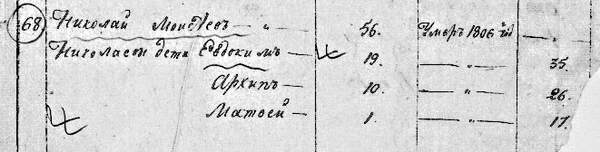 68 Николай Моисѣевъ — „ — 56. Умеръ 1806 „ —
Николаевы дети Евдокимъ — 19. — „ — 35.
Архипъ — 10. — „ — 26.
Матвей — 1. — „ — 17.